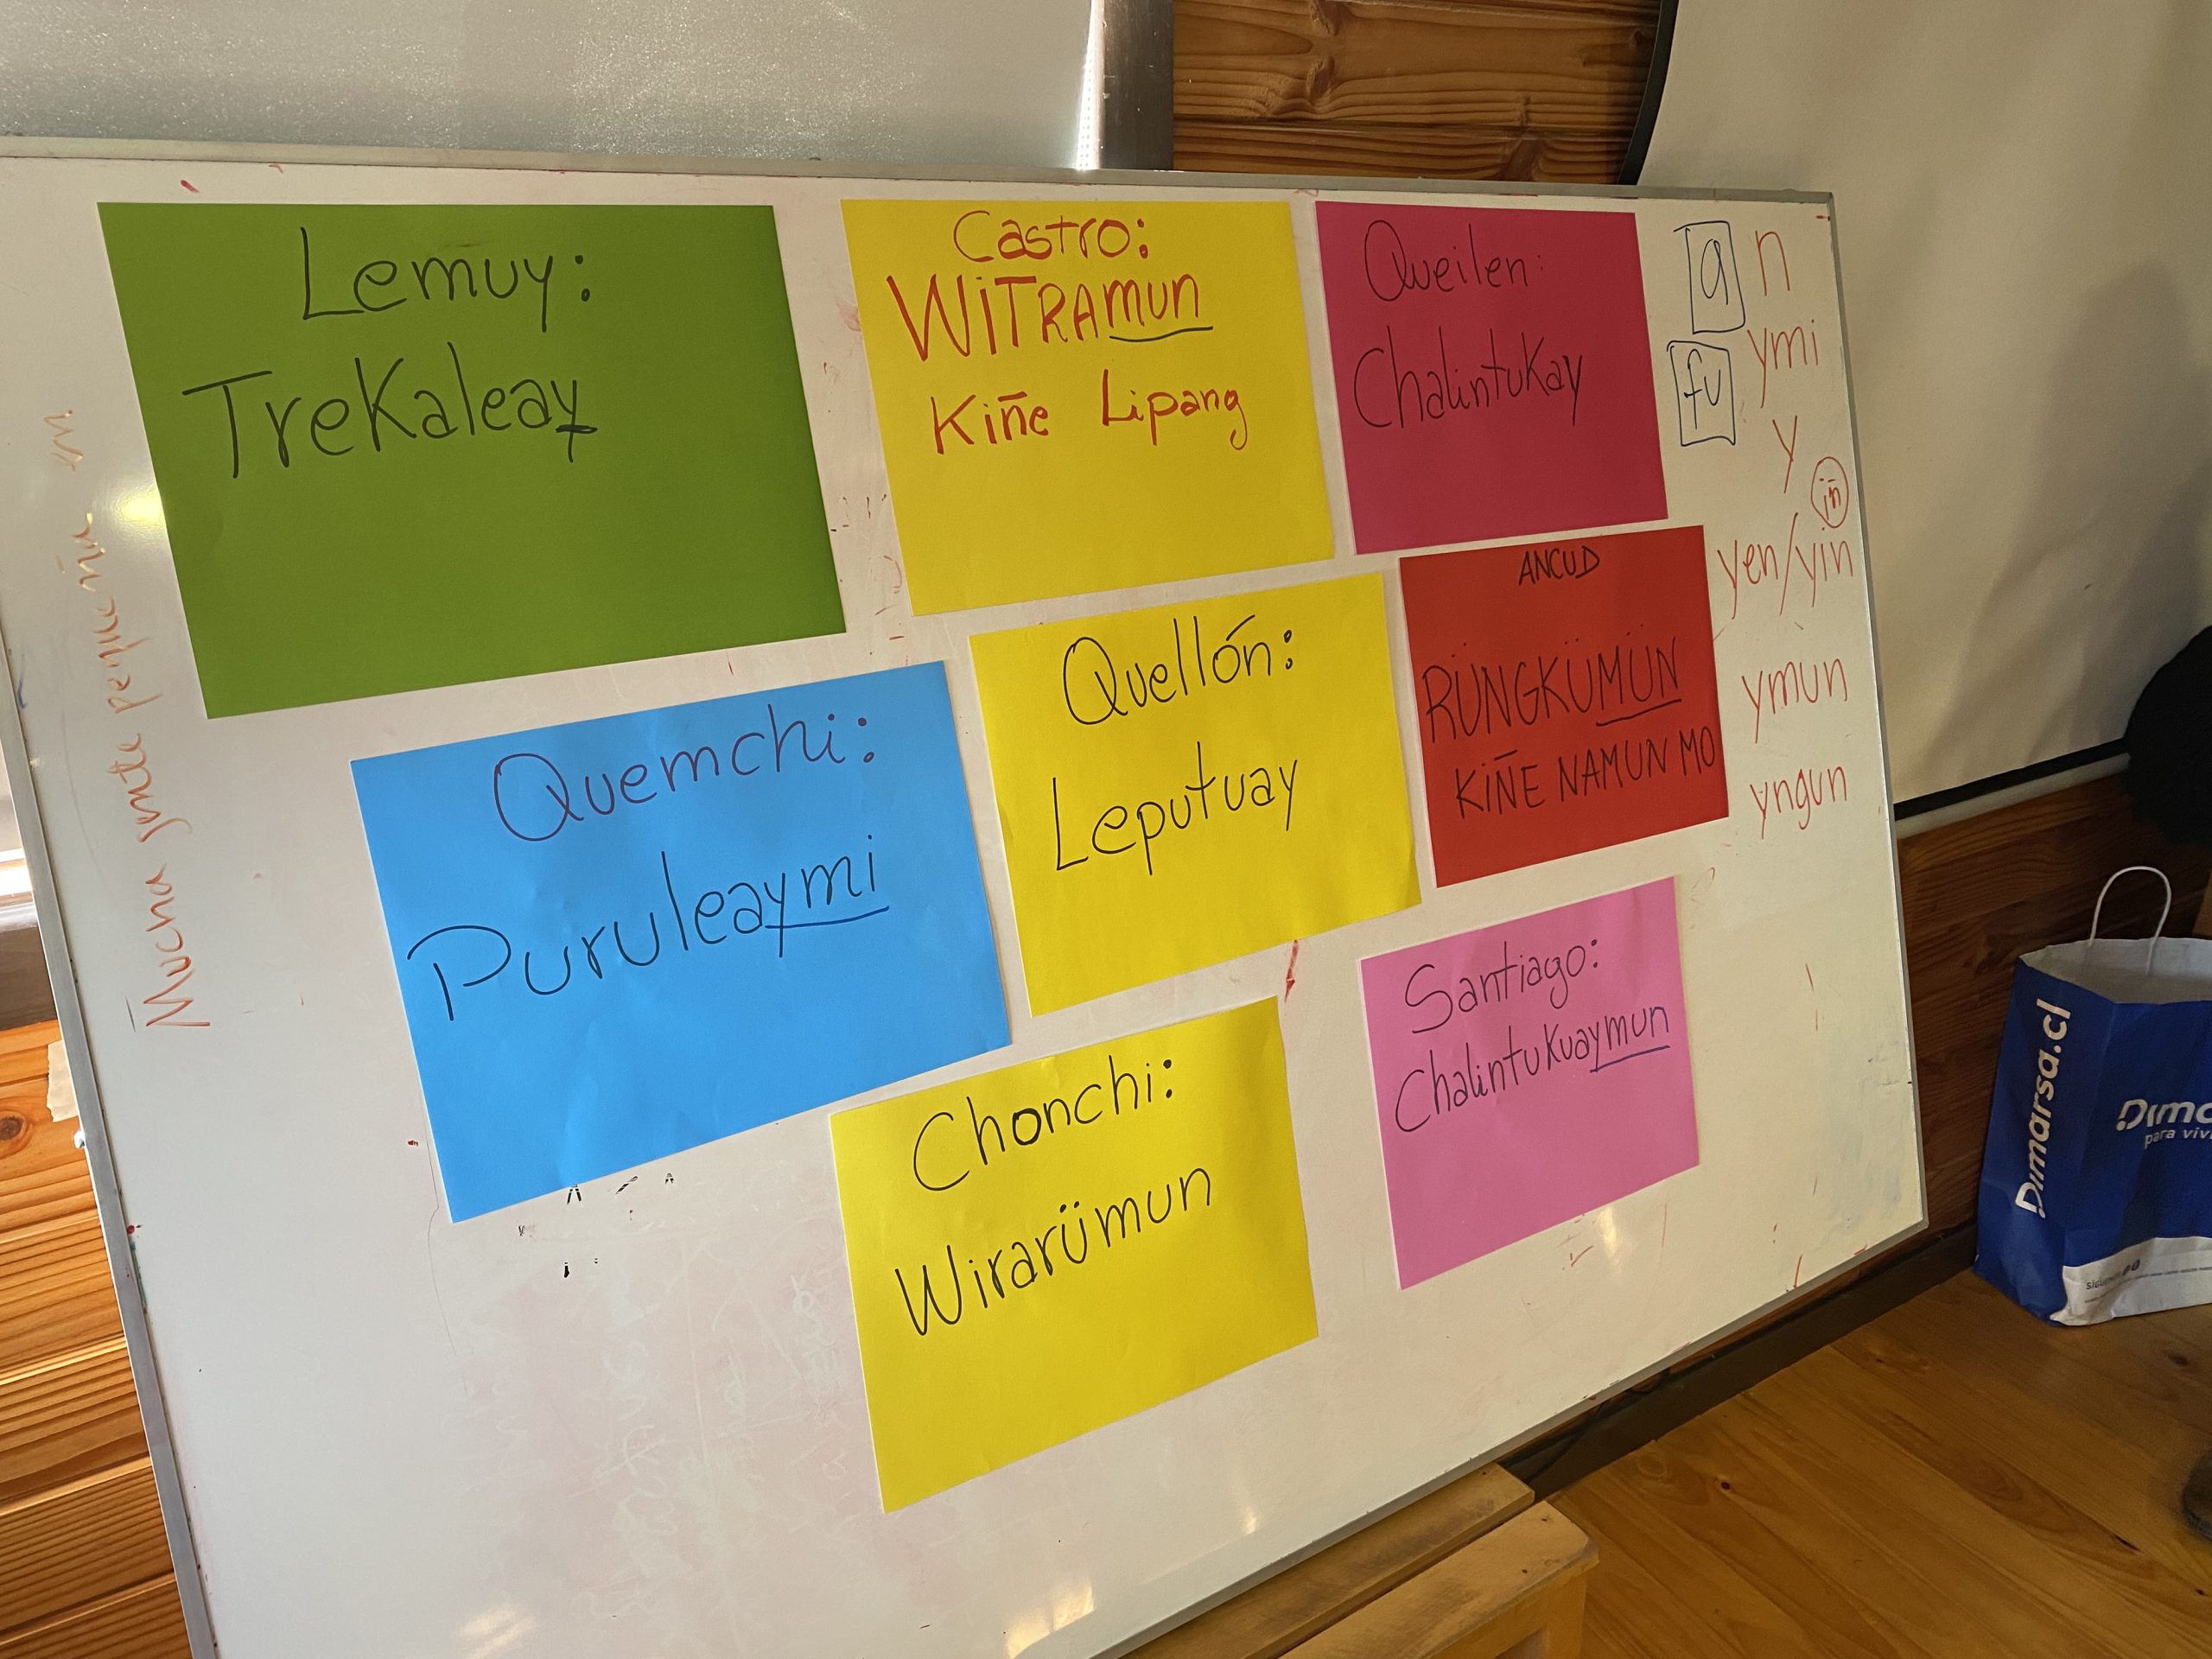 Lemuy:
Trekaleay
Castro:
WiTRAmun
Kiñe Lipang
Queilen:
Chalintukay
Quemchi:
Puruleaymi
Quellón:
Leputuay
ANCUD
RÜNGKÜMÜN
KIÑE NAMUN MO
Chonchi:
Wirarümun
Santiago:
Chalintukuaymun
a n
fu ymi
y
iñ
yen/yin
ymun
yngun
Mucha gente pequeña
Dimarsa.cl
para